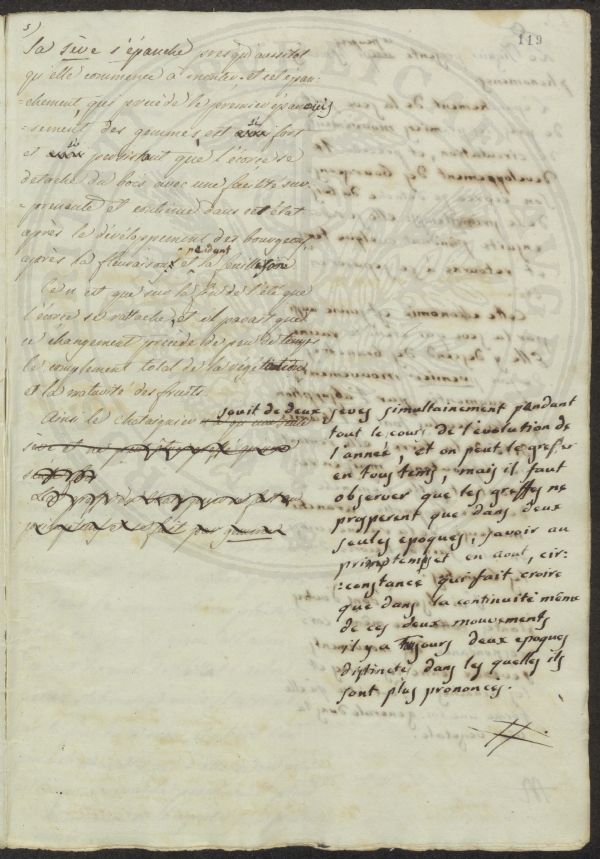 5)
119
La sève s'épanche presqu'aussitot
qu'elle commence à monter, et cet épan-
-chement, qui précéde le premier épanouis
-sement des gemmes, est si fort
et si persistant que l'écorce se
detache du bois avec une facilité sur-
-prenante et continue dans cet état
après le dévéloppement des bourgeons
après la fleuraison, et pendant la feuillaison
Ce n'est que sur la fin de l'été que
l'écorce se rattache, et il parait que
ce changement précéde de peu de temps
le complement total de la végétation
et la maturité des fruits.
Ainsi le chataignier jouit de deux seves simultainement pendant
tout le cours de l'évolution de
l'année, et on peut le greffer
en tous tems, mais il faut
observer que les greffes ne
prosperent que dans deux
seules epoques, savoir au
primptemps et en aout, cir:
:constance qui fait croire
que dans la continuité même
de ces deux mouvements
il y a toujours deux epoques
distinctes dans les quelles ils
sont plus prononcés.